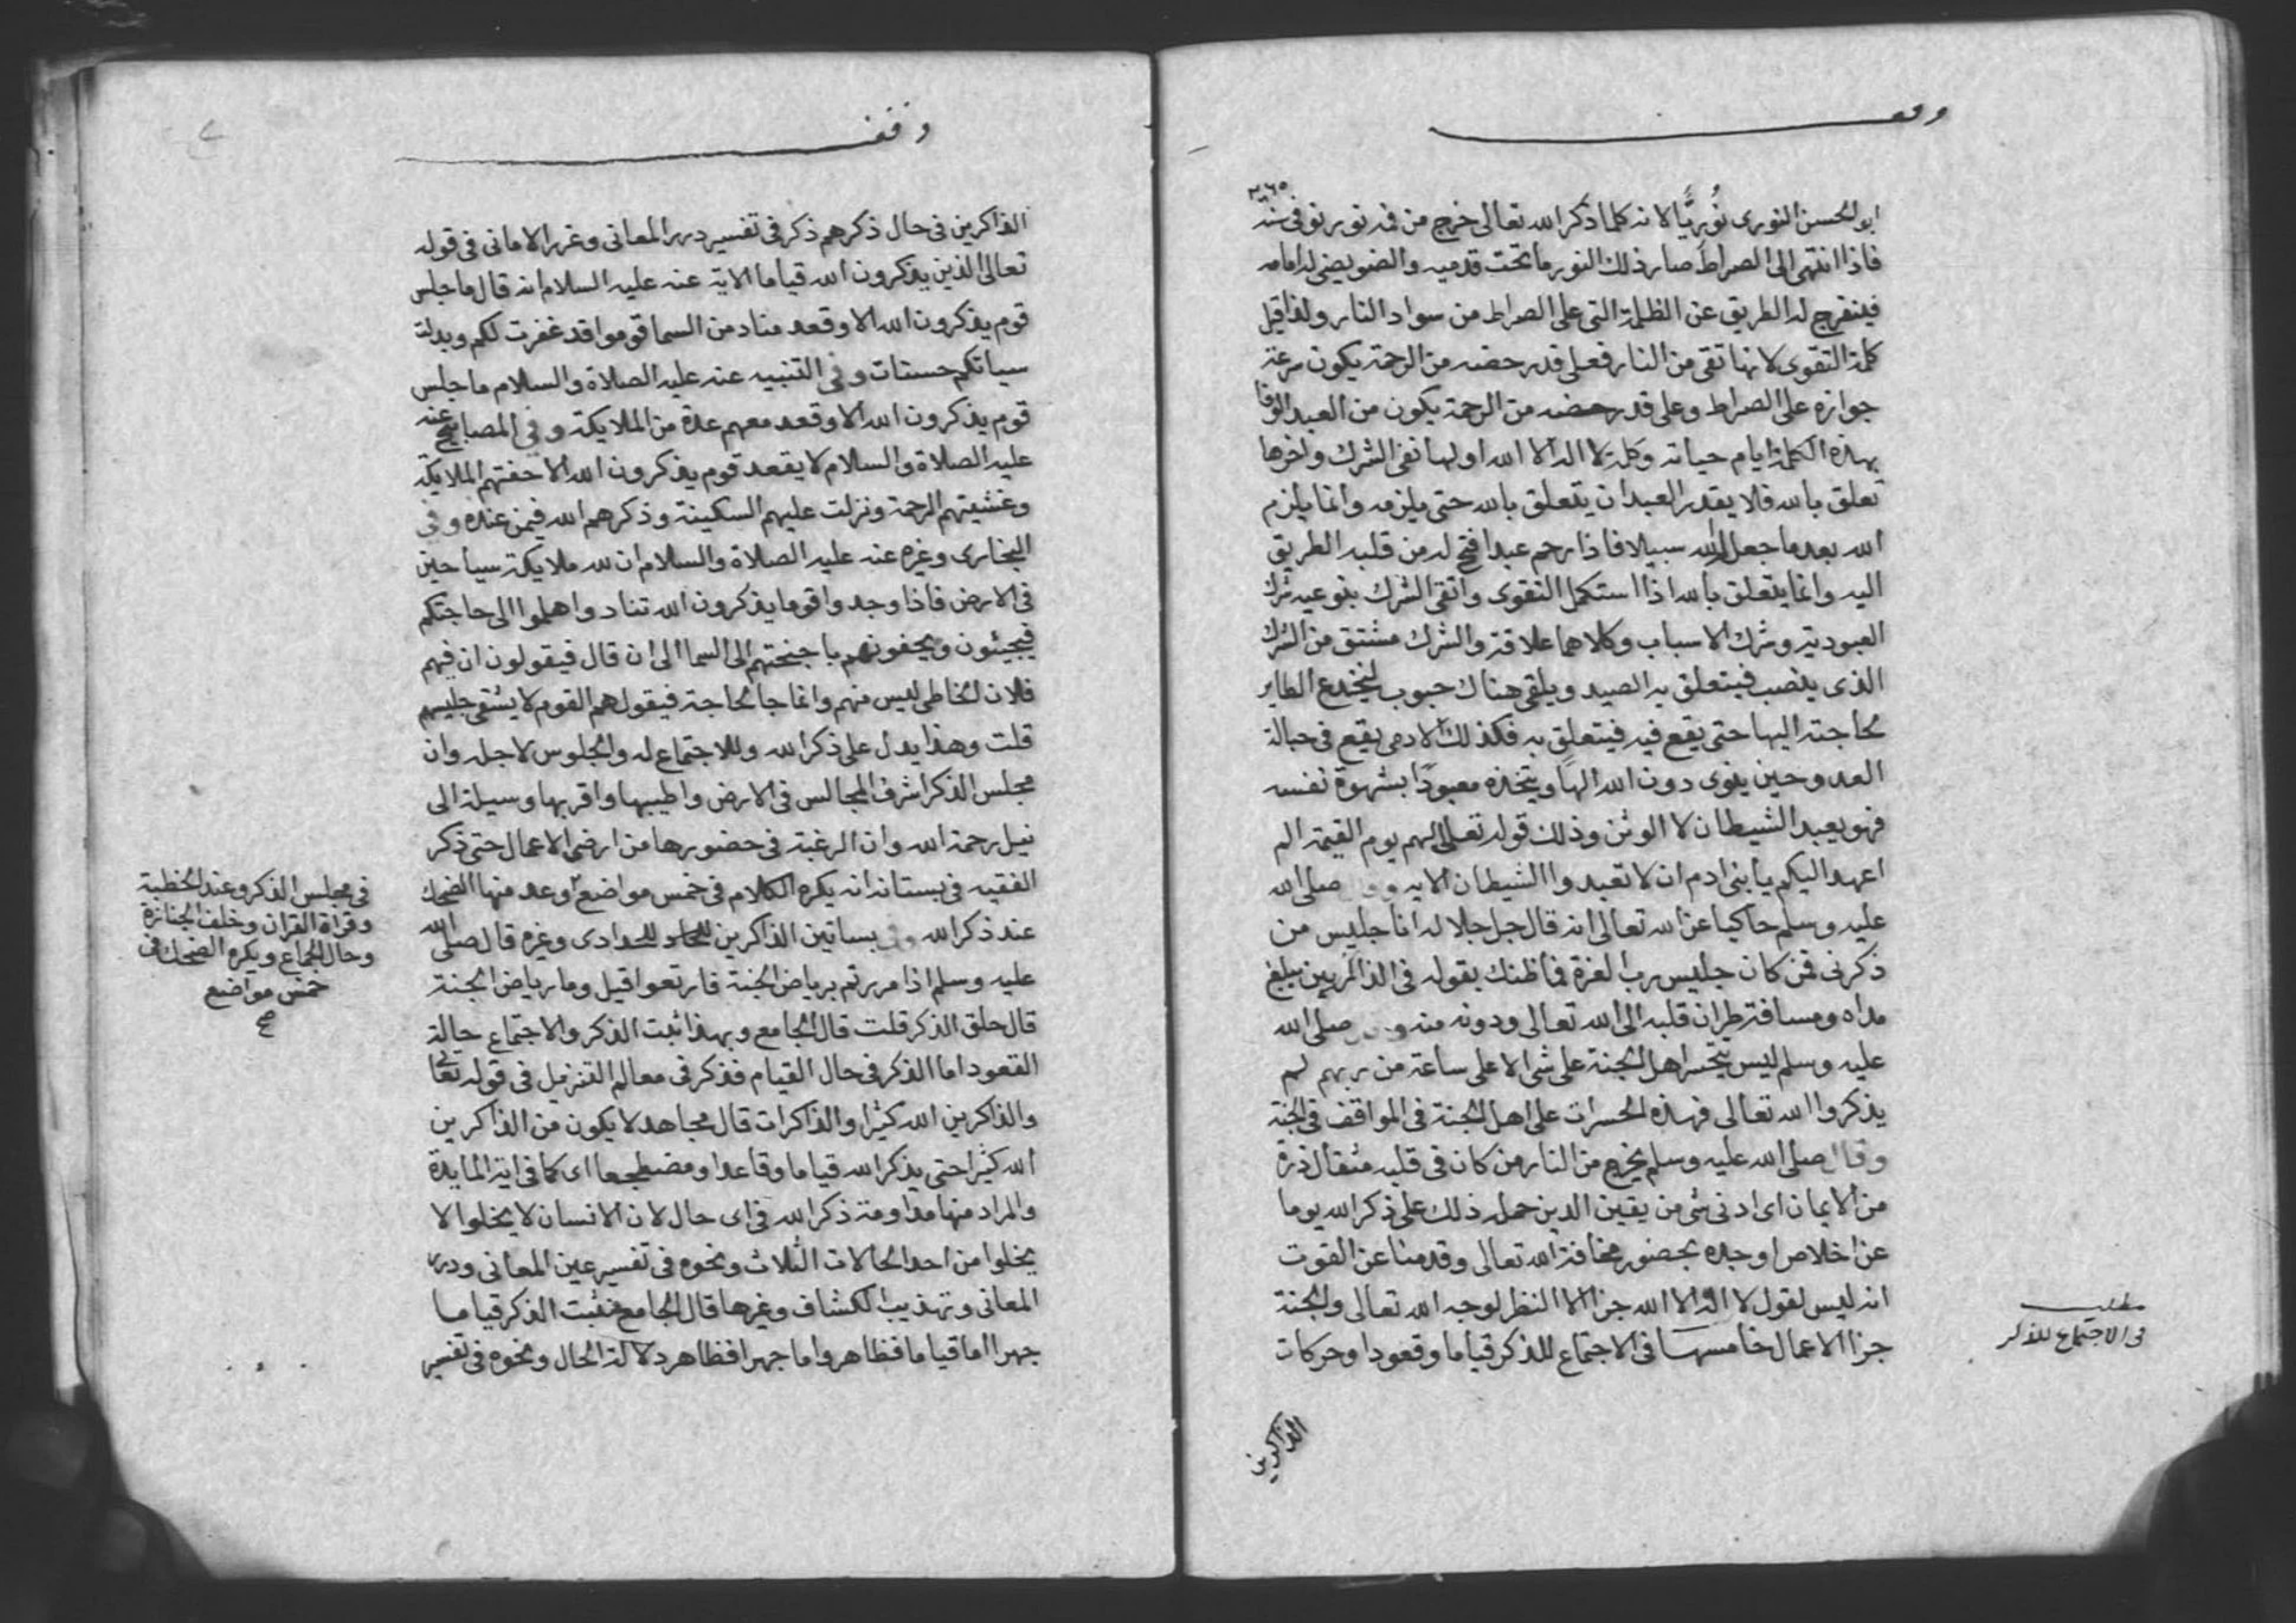 وقف
ابو الحسن النورى نُوريًّا لانه كلما ذكر الله تعالى خرج من فمه نور توفى سنة ٢٦٥
فاذا انتهى الى الصراط صار ذلك النور ما تحت قدميه والضو يضى له امامه
فينفرج له الطريق عن الظلمة التى على الصراط من سواد النار ولذا قيل
كلمة التقوى لانها تقى من النار فعلى قدر حضه من الرحمة يكون سرعة
جوازه على الصراط وعلى قدر حضه من الرحمة يكون من العبد الوفا
بهذه الكلمة ايام حياته وكلمة لا اله الا الله اولها نفى الشرك واخرها
تعلق بالله فلا يقدر العبد ان يتعلق بالله حتى يلزمه وانما يلزم
الله بعد ما جعل الله له سبيلا فاذا رحم عبدا فتح له من قلبه الطريق
اليه وانما يتعلق بالله اذا استكمل التقوى واتقى الشرك بنوعيه شرك
العبودية وشرك الاسباب وكلاهما علاقة والشرك مشتق من الشرك
الذى ينصب فيتعلق به الصيد ويلقى هناك حبوب لينخدع الطاير
لحاجته اليها حتى يقع فيه فيتعلق به فكذلك الادمى يقع فى حبالة
العدو حين ينوى دون الله الهًا ويتخذه معبودًا بشهوة نفسه
فهو يعبد الشيطان لا الوثن وذلك قوله تعالى لهم يوم القيمة الم
اعهد اليكم يا بنى ادم ان لا تعبدوا الشيطان الاية صلى الله
عليه وسلم حاكيا عن الله تعالى انه قال جل جلاله انا جليس من
ذكرنى فمن كان جليس رب العزة فما ظنك بقوله فى الذاكرين يبلغ
مداه ومسافة طيران قلبه الى الله تعالى ودونه منه صلى الله
عليه وسلم ليس يتحسر اهل الجنة على شى الا على ساعة من بهم لم
يذكروا الله تعالى فهذه الحسرات على اهل الجنة فى المواقف فى الجنة
وقال صلى الله عليه وسلم يخرج من النار من كان فى قلبه مثقال ذرة
من الايمان اى ادنى شى من يقين الدين حمله ذلك على ذكر الله يوما
عن اخلاص او جده بحضور مخافة الله تعالى وقدمنا عن القوت
انه ليس لقول لا اله الا الله جزا الا النظر لوجه الله تعالى والجنة
جزا الاعمال خامسها فى الاجتماع للذكر قياما وقعودا وحركات
مطلب
فى الاجتماع للذكر
الذاكرين
وقف
الذاكرين فى حال ذكرهم ذكر فى تفسير درر المعانى وغرر الامانى فى قوله
تعالى الذين يذكرون الله قياما الاية عنه عليه السلام انه قال ما جلس
قوم يذكرون الله الا وقعد مناد من السما قوموا قد غفرت لكم وبدلت
سياتكم حسنات وفى التنبيه عنه عليه الصلاة والسلام ما جلس
قوم يذكرون الله الا وقعد معهم عدة من الملايكة وفى المصابيح عنه
عليه الصلاة والسلام لا يقعد قوم يذكرون الله الا حفتهم الملايكة
وغشيتهم الرحمة ونزلت عليهم السكينة وذكرهم الله فيمن عنده وفى
البخارى وغيره عنه عليه الصلاة والسلام ان لله ملايكة سياحين
فى الارض فاذا وجدوا قوما يذكرون الله تنادوا هلموا الى حاجتكم
فيجيئون ويحفونهم باجنحتهم الى السما الى ان قال فيقولون ان فيهم
فلان الخاطى ليس منهم وانما جا لحاجة فيقول هم القوم لا يشقى جليسهم
قلت وهذا يدل على ذكر الله وللاجتماع له والجلوس لاجله وان
مجلس الذكر اشرف المجالس فى الارض واطيبها واقربها وسيلة الى
نيل رحمة الله وان الرغبة فى حضورها من ارضى الاعمال حتى ذكر
الفقيه فى بستانه انه يكره الكلام فى خمس مواضع وعد منها الضحك
عند ذكر الله وفى بساتين الذاكرين للحدادى وغيره قال صلى الله
عليه وسلم اذا مررتم برياض الجنة فارتعوا قيل وما رياض الجنة
قال حلق الذكر قلت قال الجامع وبهذا ثبت الذكر والاجتماع حالة
القعود اما الذكر فى حال القيام فذكر فى معالم التنزيل فى قوله تعالى
والذاكرين الله كثيرا والذاكرات قال مجاهد لا يكون من الذاكرين
الله كثيرا حتى يذكر الله قياما وقاعدا ومضطجعا اى كما فى اية المايدة
والمراد منها مداومة ذكر الله فى اى حال لان الانسان لا يخلوا لا
يخلوا من احد الحالات الثلاث ونحوه فى تفسير عين المعانى ودرر
المعانى وتهذيب الكشاف وغيرها قال الجامع فثبت الذكر قياما
جهرا اما قياما فظاهر واما جهرا فظاهر دلالة الحال ونحوه فى تفسير
فى مجلس الذكر وعند الخطبة
وقراة القران وخلف الجنازة
وحال الجماع ويكره الضحك فى
خمس مواضع
صح